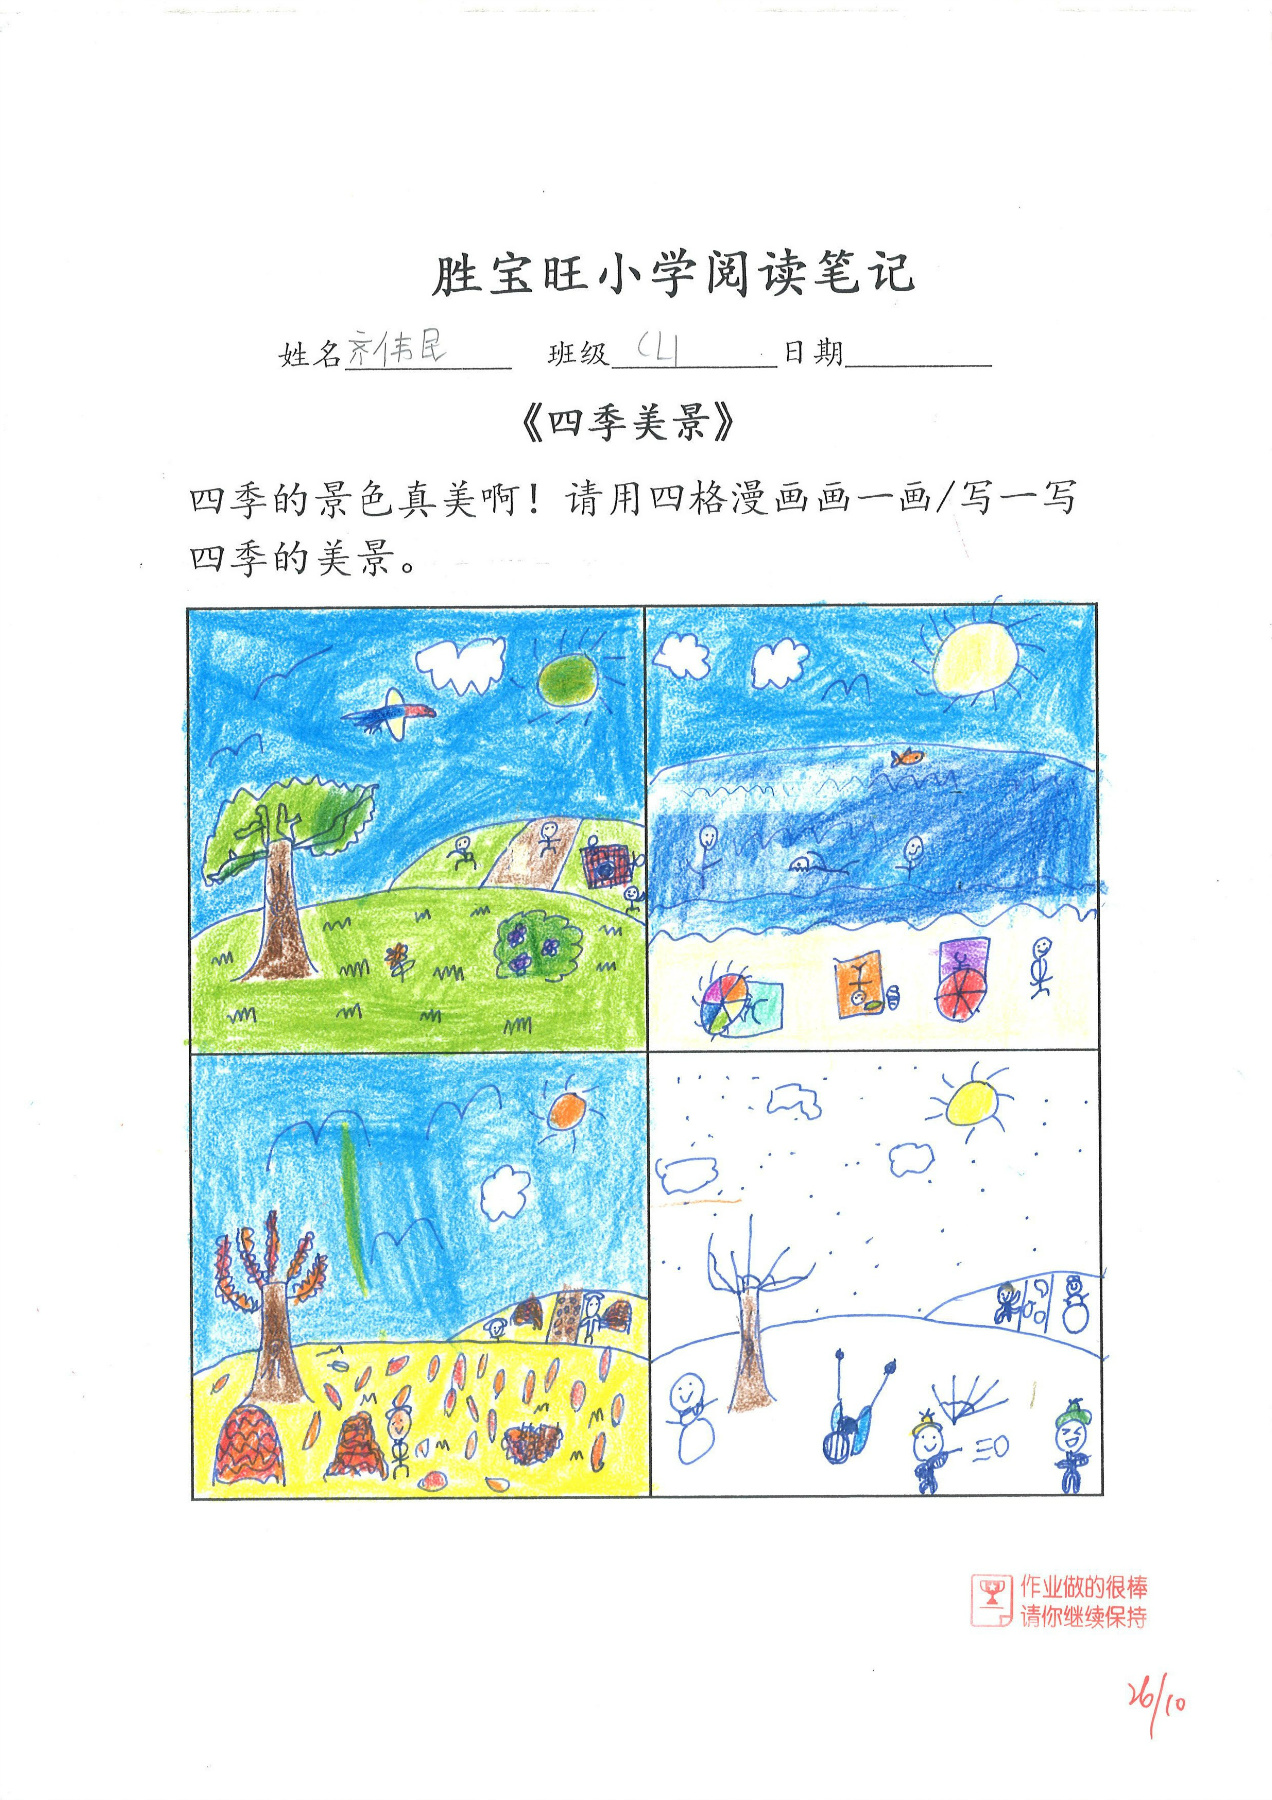 胜宝旺小学阅读笔记
姓名 齐伟民 班级 CL1 日期
《四季美景》
四季的景色真美啊！请用四格漫画画一画/写一写
四季的美景。
作业做的很棒
请你继续保持
26/10